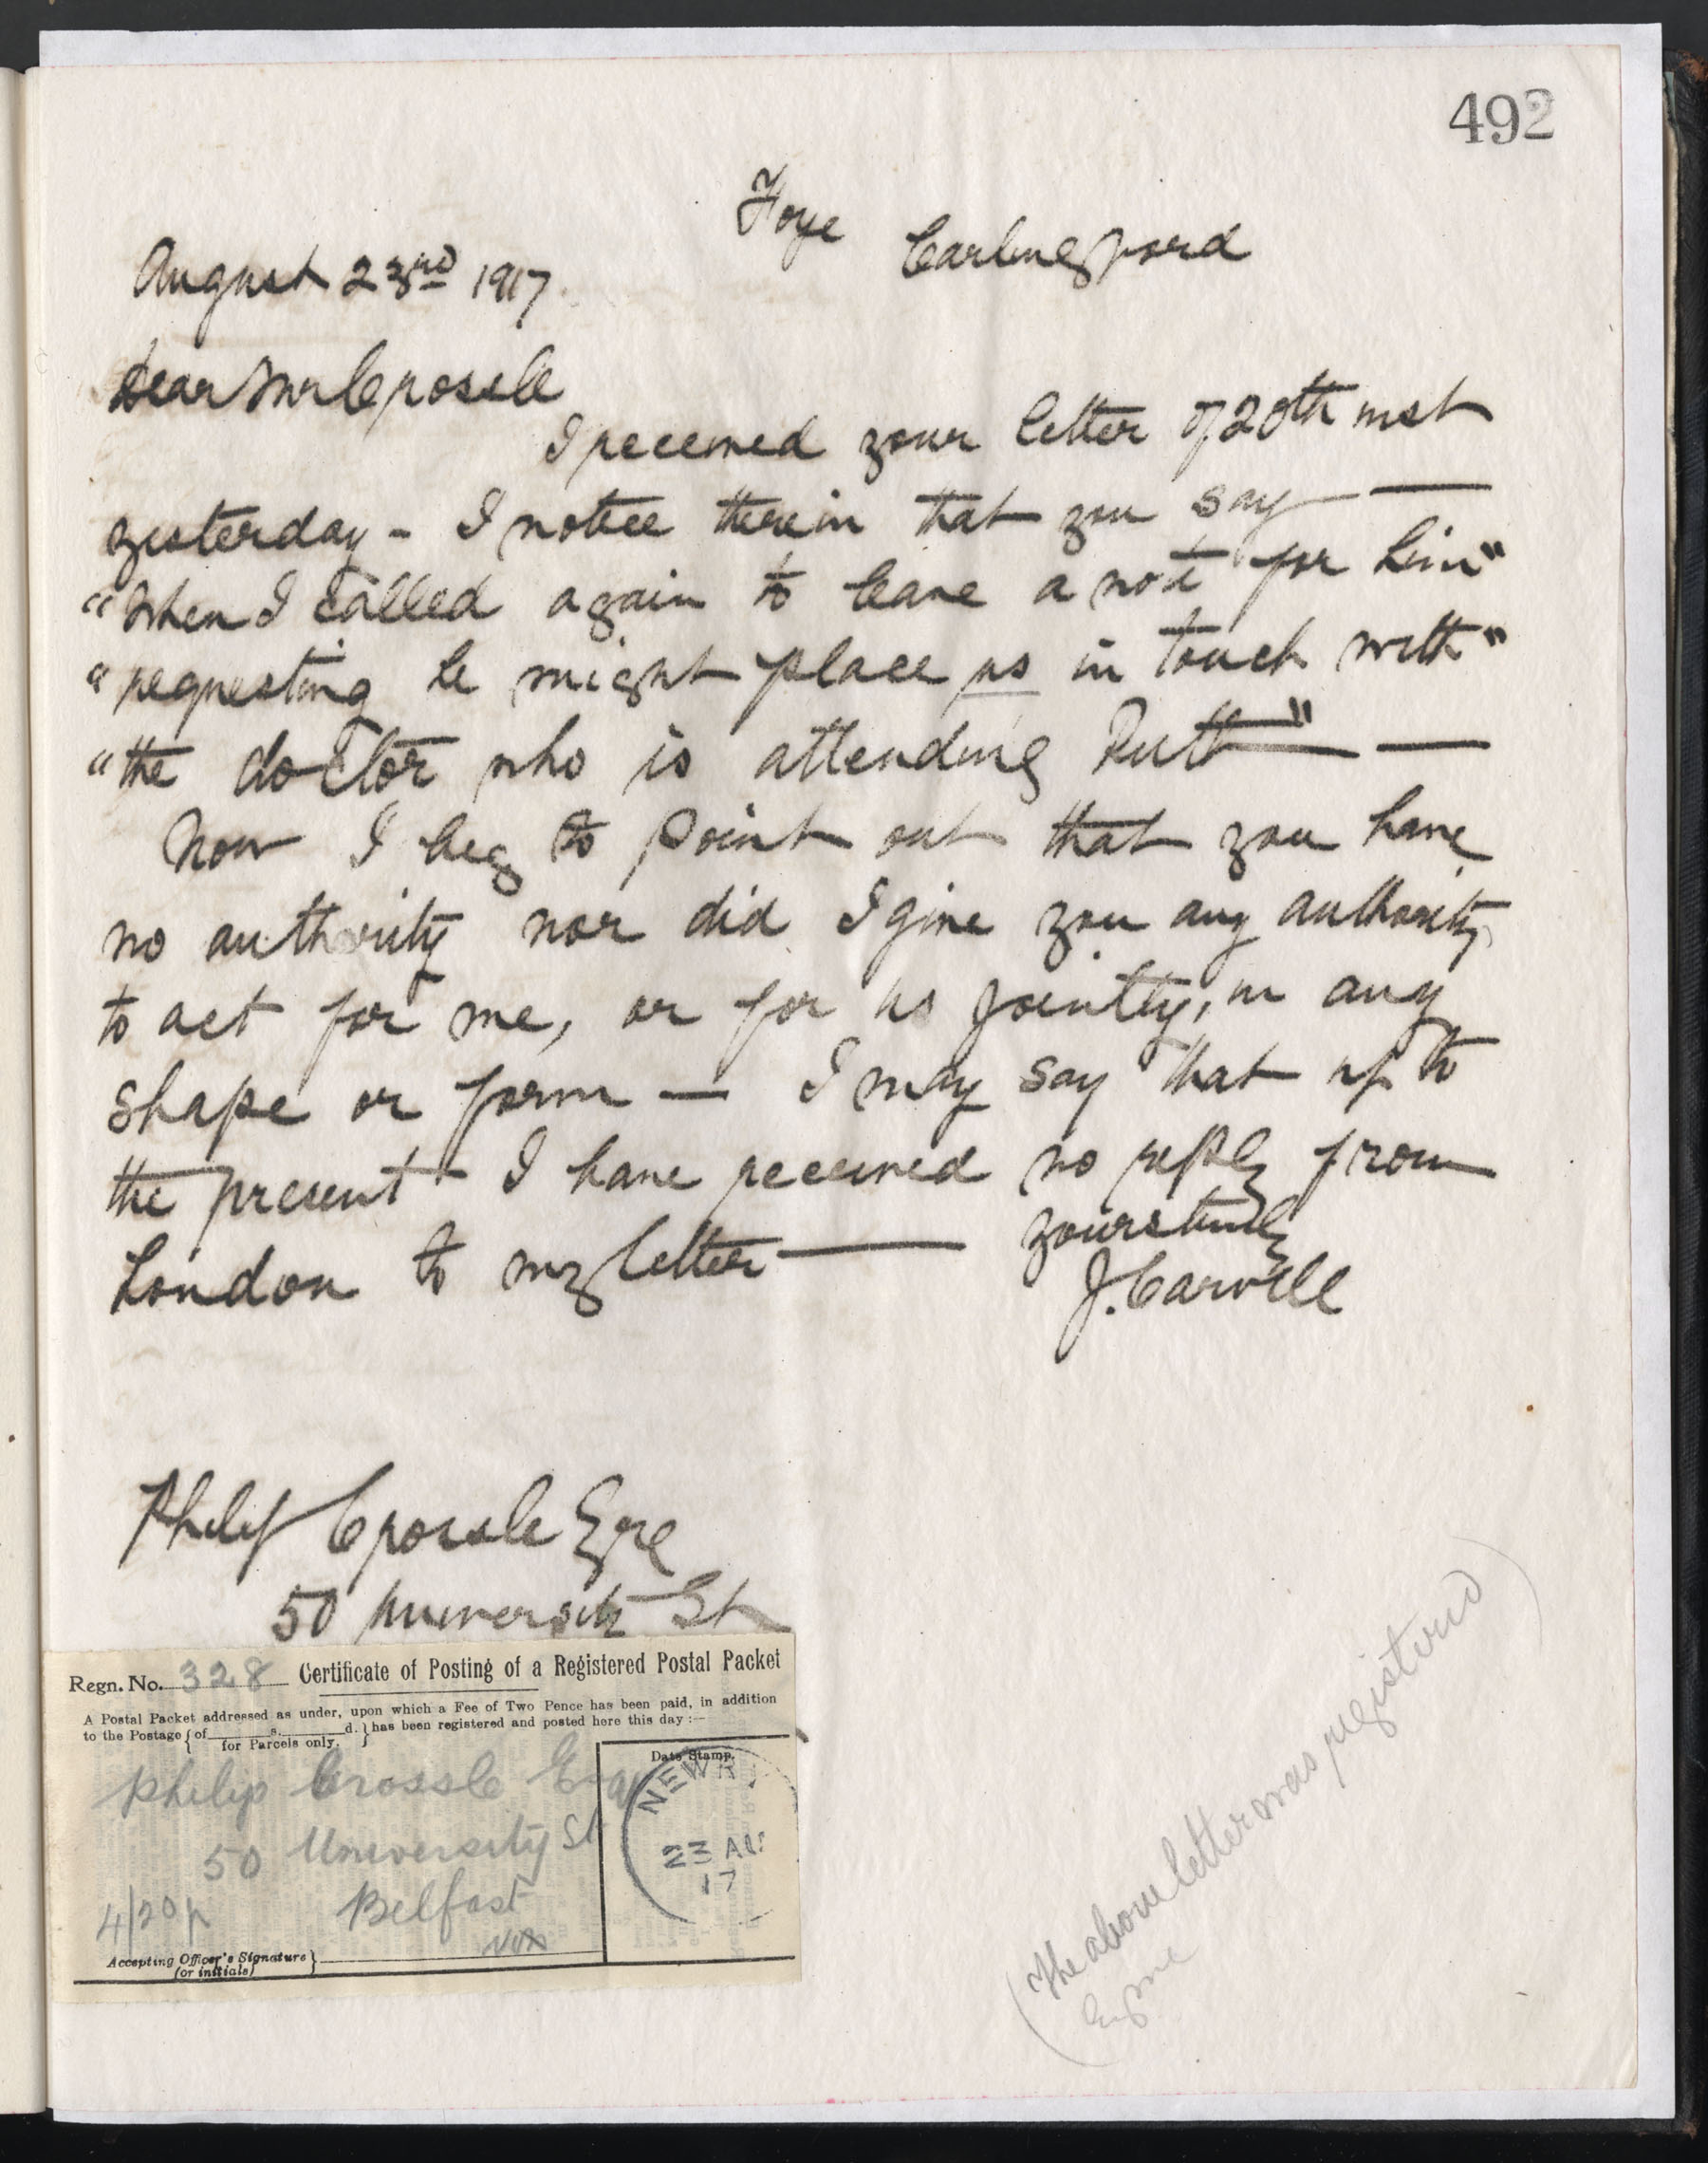 492
Foye Carlingford
August 23rd 1917.
Dear Mr Crossle
I received your letter of 20th inst
yesterday - I notice therein that you say —
"When I called again to leave a note for him"
"requesting he might place us in touch with"
"the doctor who is attending Ruth" —
Now I beg to point out that you have
no authority nor did I give you any authority
to act for me, or for us jointly, in any
shape or form — I may say that up to
the present I have received no reply from
London to my letter — yours truly
J. Carvill
Philip Crossle Esqre
50 University St
Regn. No. 328 Certificate of Posting of a Registered Postal Packet
A Postal Packet addressed as under, upon which a Fee of Two Pence has been paid, in addition
to the Postage { of s. d. } has been registered and posted here this day :—
for Parcels only.
Date Stamp.
Philip Crossle Esqr
50 University St
Belfast
4/20 p
NEWRY
23 AU
17
Accepting Officer's Signature }
(or initials)
(The above letter was registered
by me